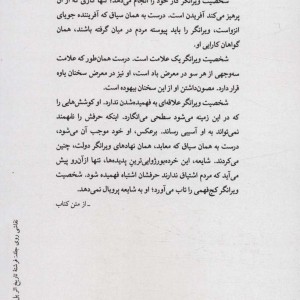 شخصیت ویرانگر کار خود را انجام می‌دهد؛ تنها کاری که از آن
پرهیز می‌کند آفریدن است. درست به همان سیاق که آفریننده جویای
انزواست، ویرانگر را باید پیوسته مردم در میان گرفته باشند، همان
گواهان کارایی او.
شخصیت ویرانگر یک علامت است. درست همان‌طور که علامت
سه‌وجهی از هر سو در معرض باد است، او نیز در معرض سخنان یاوه
قرار دارد. مصون‌داشتن او از این سخنان بیهوده است.
شخصیت ویرانگر علاقه‌ای به فهمیده‌شدن ندارد. او کوشش‌هایی را
که در این زمینه می‌شود سطحی می‌انگارد. اینکه حرفش را نفهمند
نمی‌تواند به او آسیبی رساند. برعکس، او خود موجب آن می‌شود،
درست به همان سیاق که معابد، همان نهادهای ویرانگر دولت، چنین
می‌کردند. شایعه، این خرده‌بورژوایی‌ترین پدیده‌ها، تنها ازآن‌رو پیش
می‌آید که مردم اشتیاق ندارند حرفشان اشتباه فهمیده شود. شخصیت
ویرانگر کج‌فهمی را تاب می‌آورد؛ او به شایعه پروبال نمی‌دهد.
- از متن کتاب
نقاشی روی جلد: فرشتهٔ تاریخ اثر پل